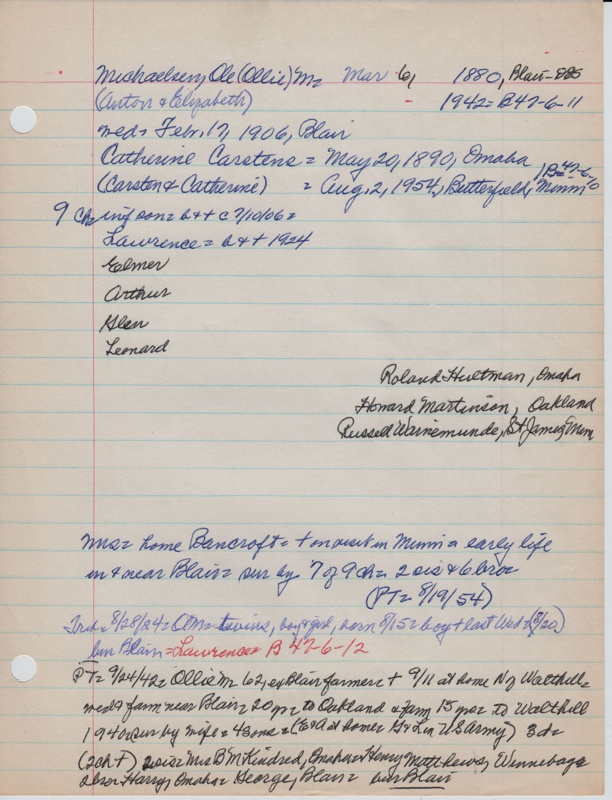 Michaelsen, Ole (Ollie) M= Mar 6, 1880, Blair-
(Anton & Elizabeth) 1942= B47-6-11
wed= Feb. 17, 1906, Blair
Catherine Carstens = May 20, 1890, Omaha
(Carsten & Catherine) = Aug. 2, 1954, Butterfield, Minn B=47-6-10
9 Ch= inf son= b & + c 7/10/06=
Lawrence = b & + 1924
Elmer
Arthur
Glen
Leonard
Roland Hultman, Omaha
Howard Martinson, Oakland
Russell Warnemunde, St James, Minn
Mrs= home Bancroft= + on visit in Minn= early life
in & near Blair= sur by 7 of 9 ch= 2 sis & 6 bro=
(PT= 8/19/54)
8/28/24= OM= twins, boy & girl, born 8/15= boy + last Wed= (8/20)
bur Blair =Lawrence= B 47-6-12
PT= 9/24/42= Ollie M= 62, ex Blair farmer= + 9/11 at home N of Walthill=
wed & farm near Blair= 20 yr= to Oakland & farm 15 yrs= to Walthill
1940= sur by wife= 4 sons= (E & A at home= G & L in US Army) 3 d=
(2 ch +) 2 sis= Mrs B M Kindred, Omaha= Henry Matthews, Winnebago
2 bro= Harry, Omaha= George, Blair= bur Blair